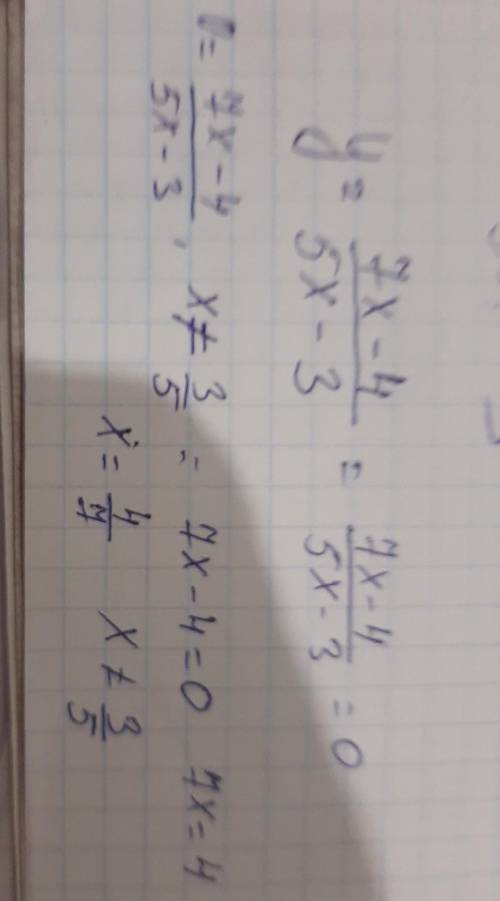 y = 7x - 4 / 5x - 3 = 7x - 4 / 5x - 3 = 0
= 7x - 4 / 5x - 3 , x ≠ 3/5 = 7x - 4 = 0 7x = 4
x = 4/7 x ≠ 3/5